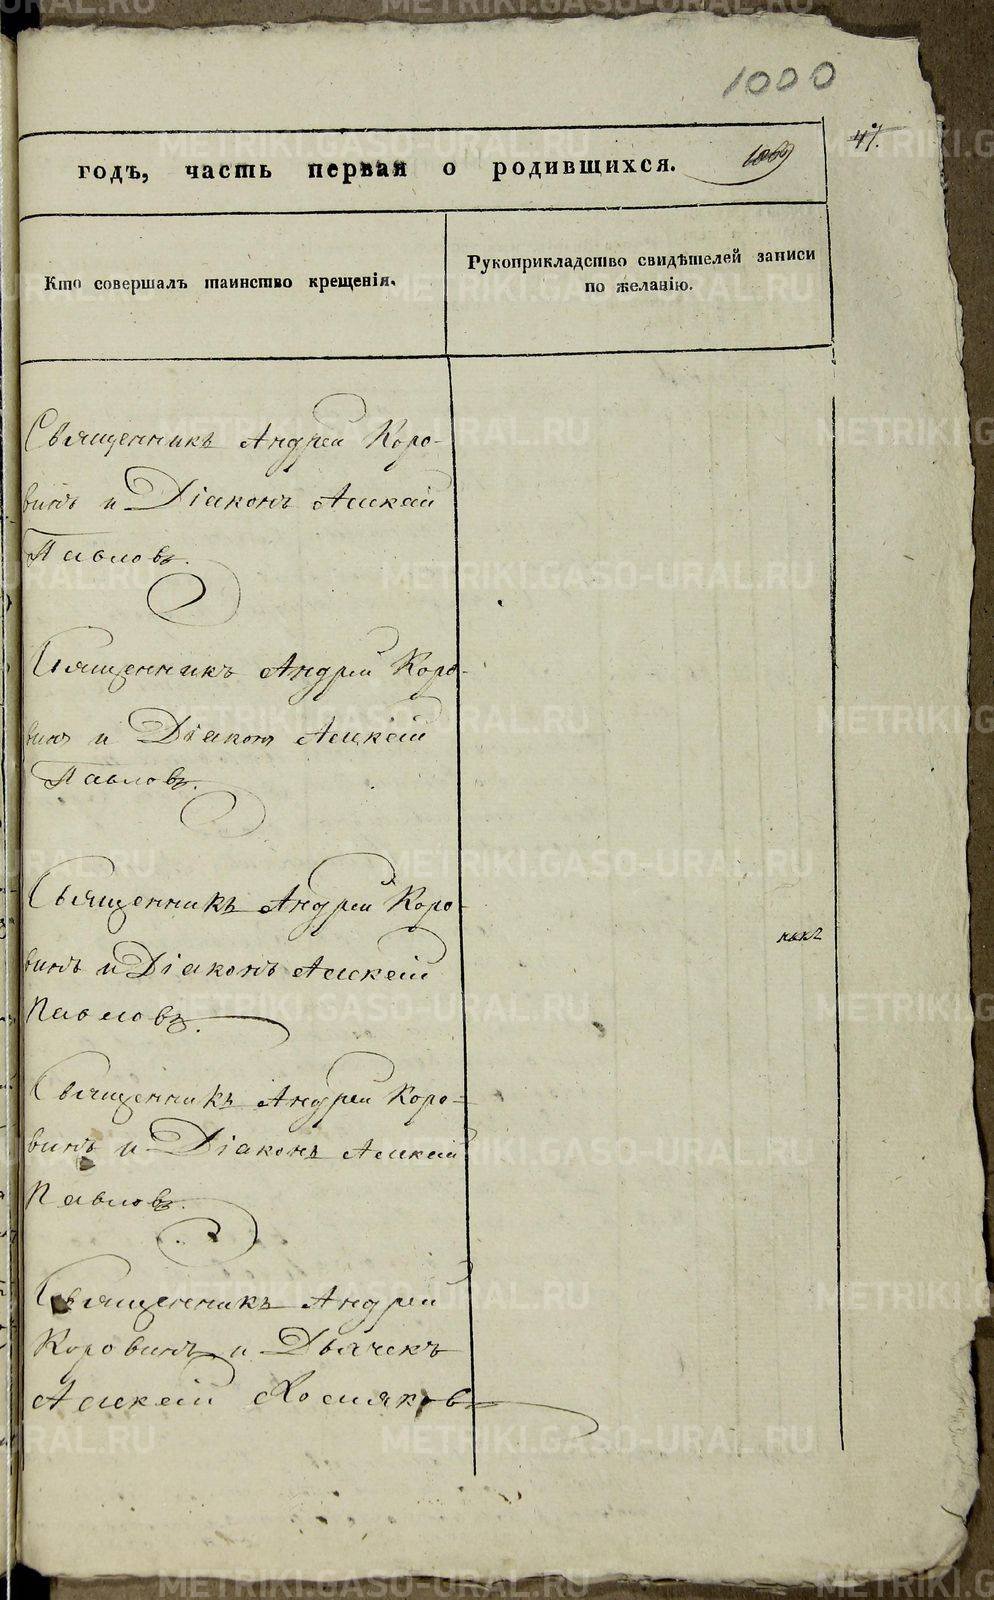 1000
47.
годъ, часть первая о родившихся. 1069
Кто совершалъ таинство крещенія.
Рукоприкладство свидѣтелей записи
по желанію.
Священникъ Андрей Коро-
винъ и Діаконъ Алексѣй
Павловъ.
Священникъ Андрей Коро-
винъ и Діаконъ Алексѣй
Павловъ.
Священникъ Андрей Коро-
винъ и Діаконъ Алексѣй
Павловъ.
Священникъ Андрей Коро-
винъ и Діаконъ Алексѣй
Павловъ.
Священникъ Андрей
Коровинъ и Дьячекъ
Алексѣй Хомяковъ
METRIKI.GASO-URAL.RU